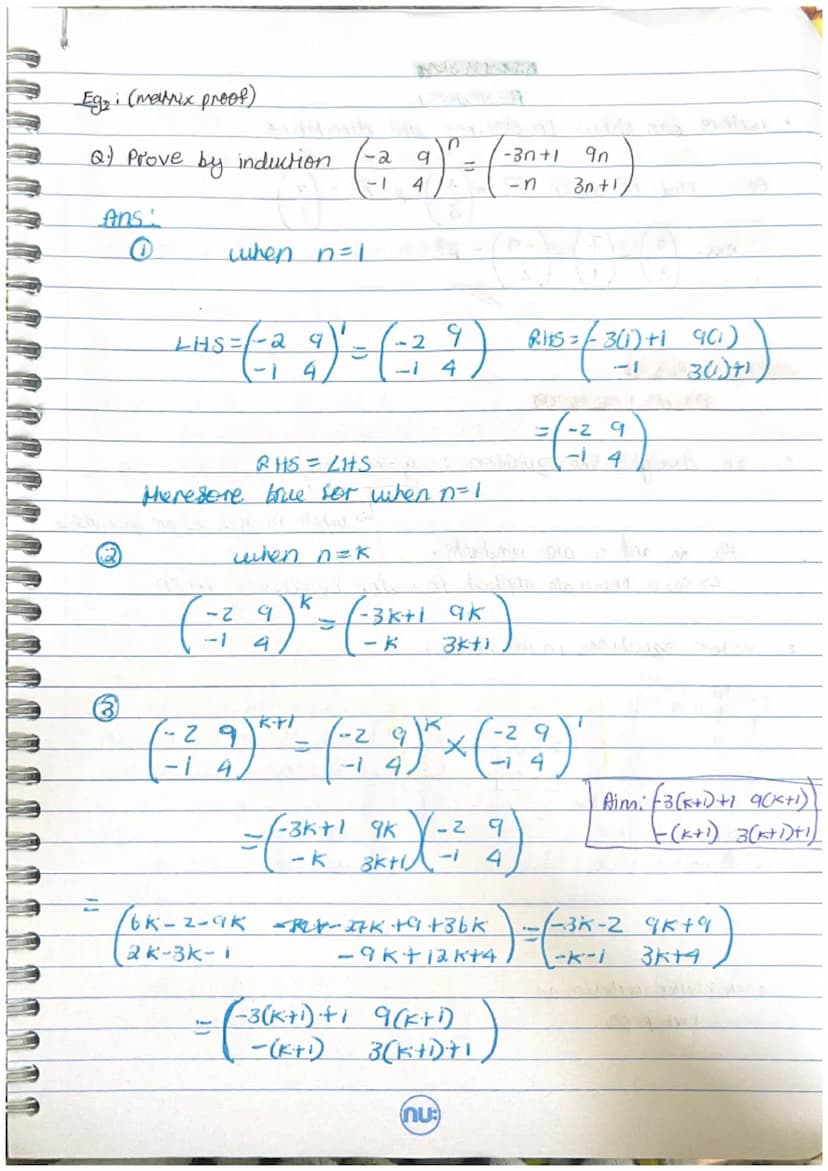 Eg2: (matrix proof)
Q) Prove by induction (-2 9 / -1 4)^n = (-3n+1 9n / -n 3n+1)
Ans:
① when n=1
LHS = (-2 9 / -1 4)^1 = (-2 9 / -1 4) RHS = (-3(1)+1 9(1) / -1 3(1)+1)
= (-2 9 / -1 4)
RHS = LHS
therefore true for when n=1
② when n=k
(-2 9 / -1 4)^k = (-3k+1 9k / -k 3k+1)
③
(-2 9 / -1 4)^k+1 = (-2 9 / -1 4)^k × (-2 9 / -1 4)^1
Aim: (-3(k+1)+1 9(k+1) / -(k+1) 3(k+1)+1)
= (-3k+1 9k / -k 3k+1)(-2 9 / -1 4)
= (6k-2-9k -27k+9+36k / 2k-3k-1 -9k+12k+4) = (-3k-2 9k+9 / -k-1 3k+4)
= (-3(k+1)+1 9(k+1) / -(k+1) 3(k+1)+1)
nu: